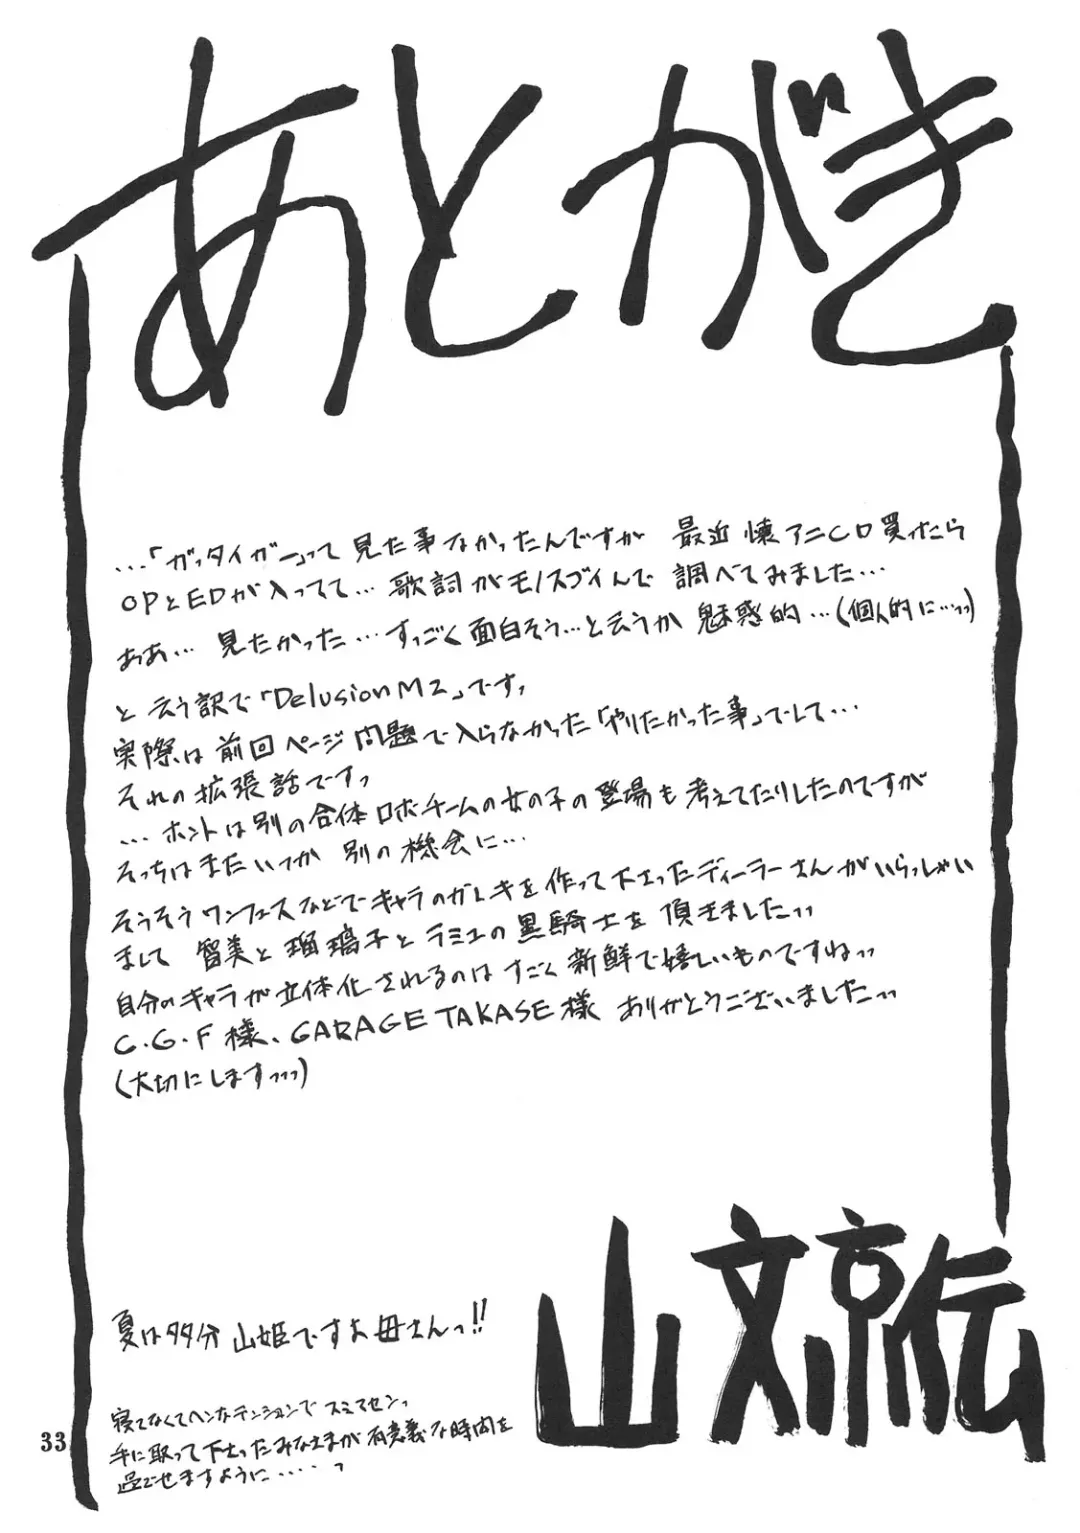 あとがき
…「ガッタイガー」って見た事なかったんですが 最近 懐アニCD買ったら
OPとEDが入ってて… 歌詞がモノスゴイんで 調べてみました…
ああ… 見たかった…すっごく面白そう…と云うか 魅惑的…(個人的に…っっ)
と云う訳で「Delusion M2」です。
実際は前回ページ問題で入らなかった「やりたかった事」でして…
それの拡張話ですっ
…ホントは別の合体ロボチームの女の子の登場も考えてたりしたのですが
そっちはまたいつか 別の機会に…
そうそうワンフェスなどでキャラのガレキを作って下さったディーラーさんがいらっしゃい
まして 智美と瑠璃子とラミュの黒騎士を 頂きましたっっ
自分のキャラが立体化されるのはすごく新鮮で嬉しいものですねっっ
C.G.F様、GARAGE TAKASE様 ありがとうございましたっっ
(大切にしますっっっ)
夏は多分 山姫ですお母さんっ!!
山文京伝
寝てなくてヘンなテンションでスミマセンっ
手に取って下さったみなさまが有意義な時間を
過ごせますように……っ
33